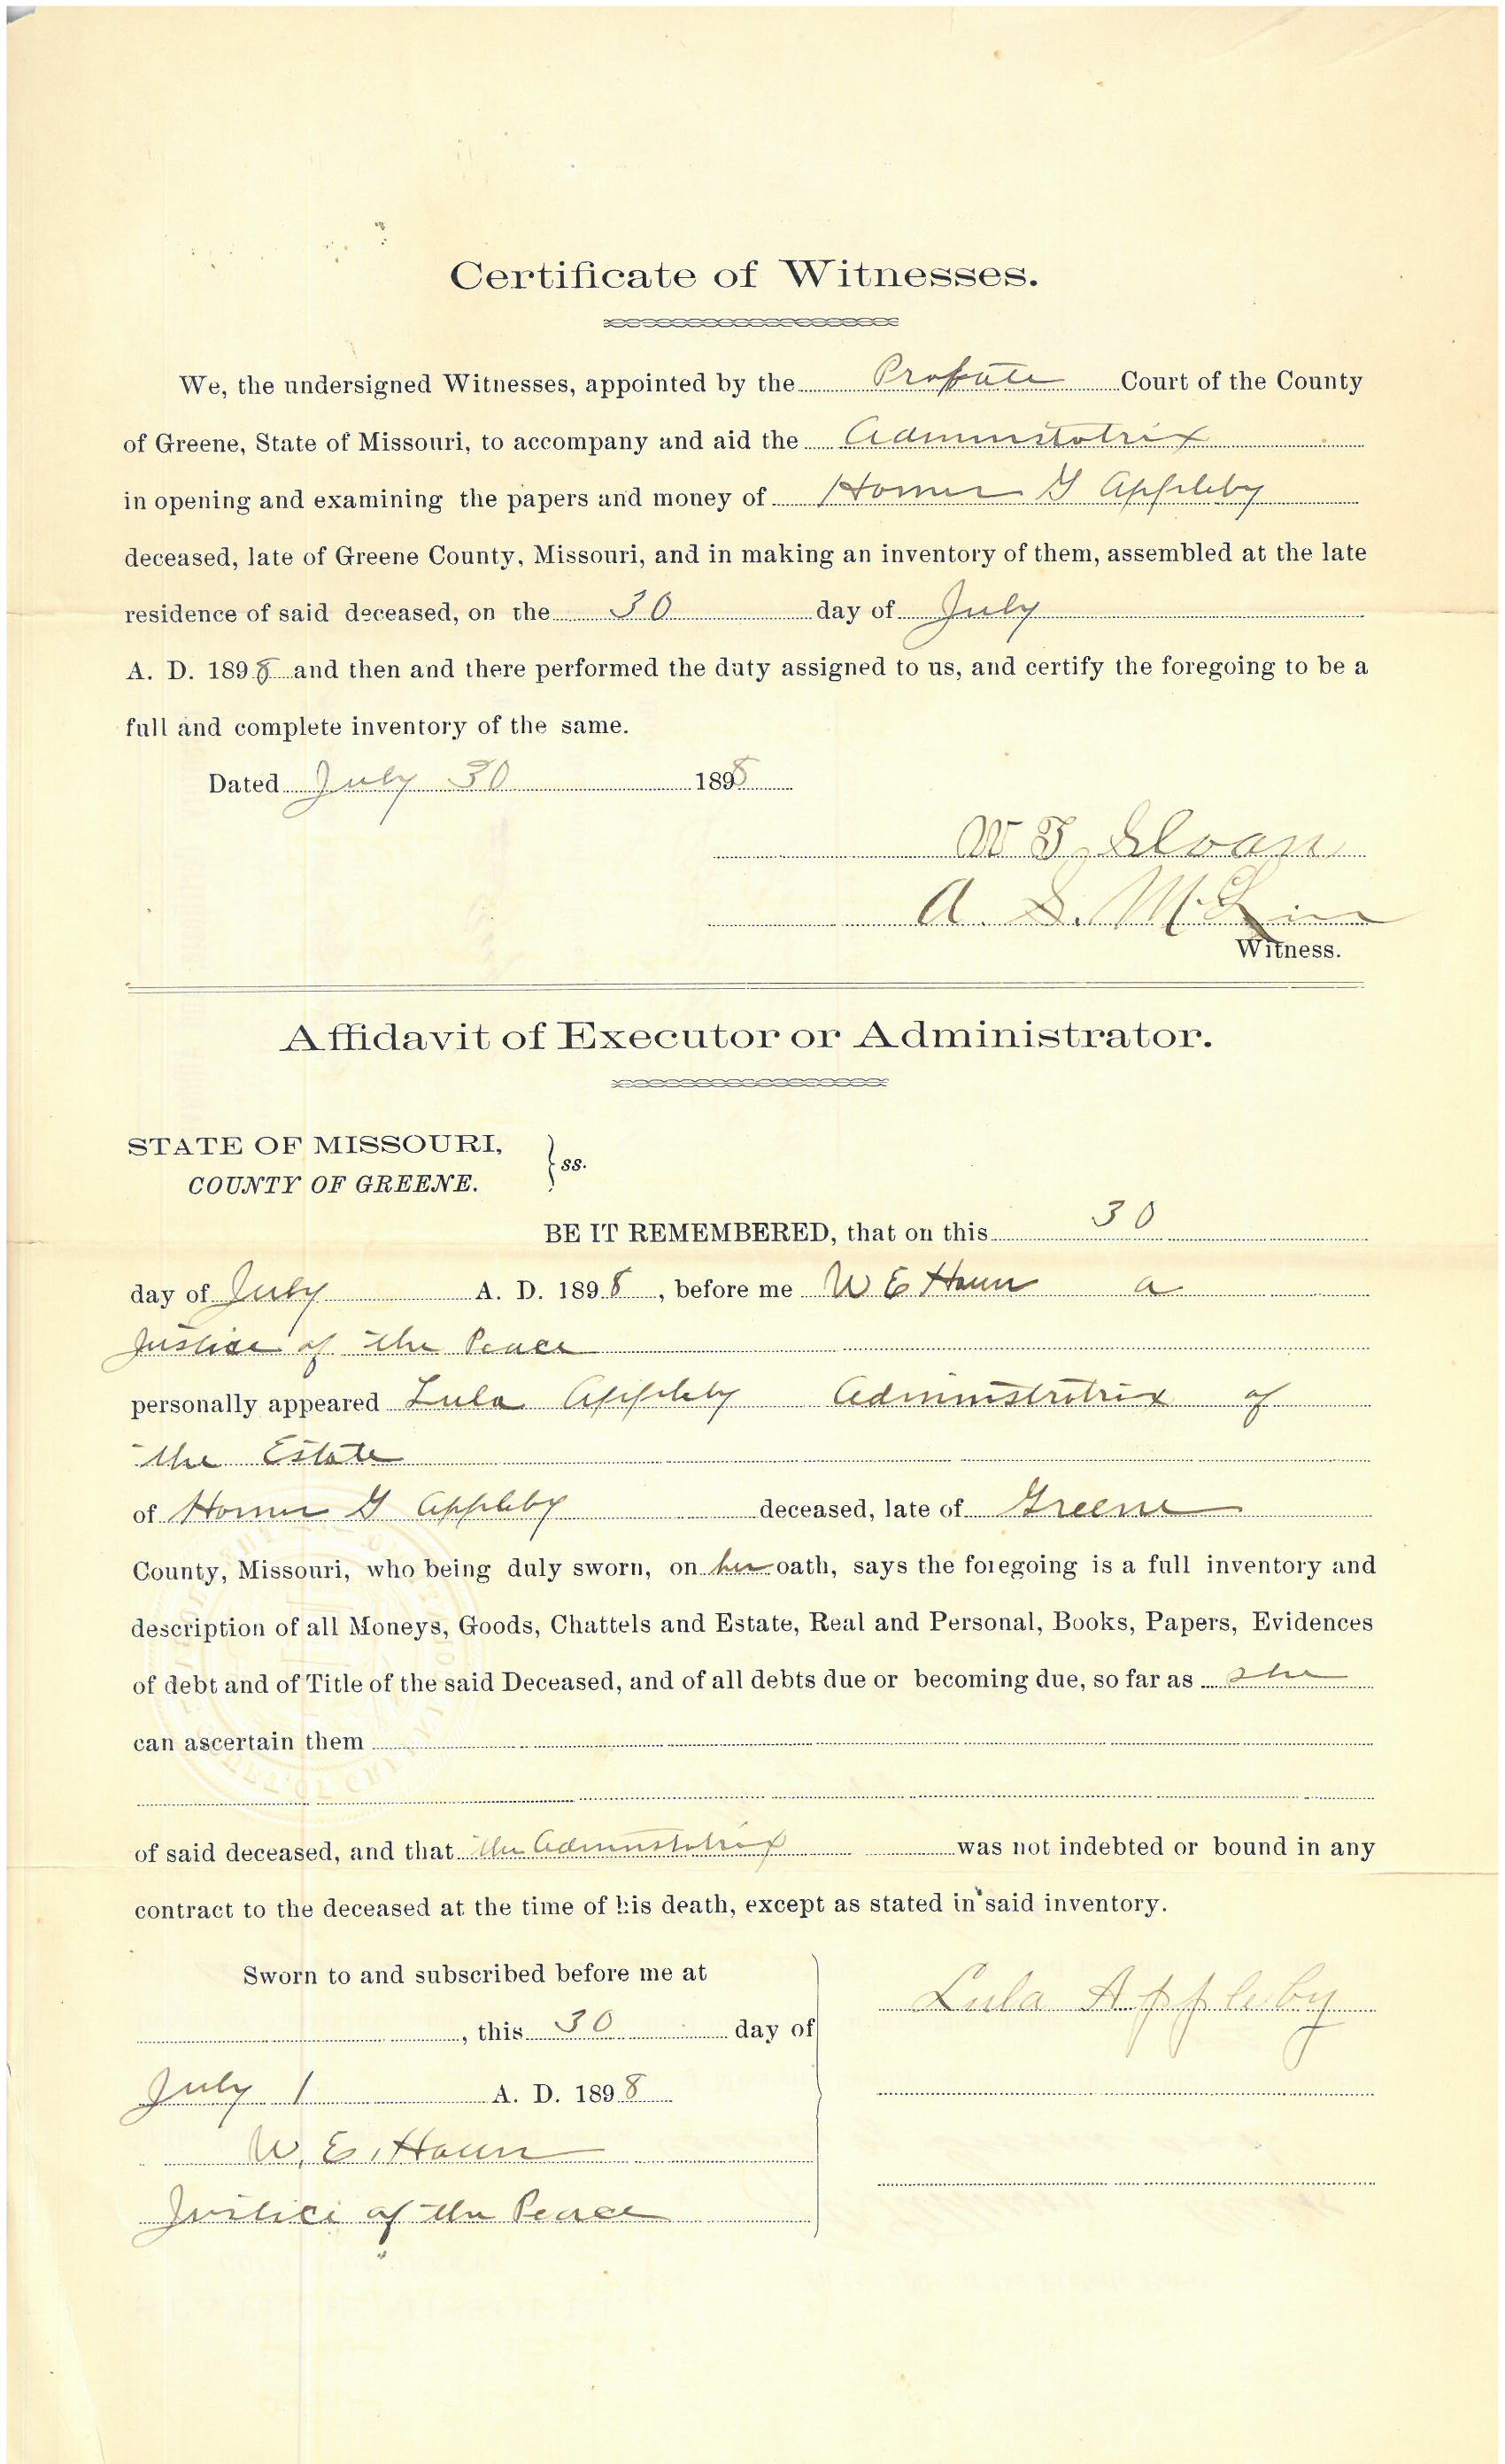 Certificate of Witnesses.
We, the undersigned Witnesses, appointed by the Probate Court of the County
of Greene, State of Missouri, to accompany and aid the Adminstotrix
in opening and examining the papers and money of Homer G Appleby
deceased, late of Greene County, Missouri, and in making an inventory of them, assembled at the late
residence of said deceased, on the 30 day of July
A. D. 1898 and then and there performed the duty assigned to us, and certify the foregoing to be a
full and complete inventory of the same.
Dated July 30 1898
W. T. Sloan
A. S. McLin
Witness.
Affidavit of Executor or Administrator.
STATE OF MISSOURI,
COUNTY OF GREENE. } ss.
BE IT REMEMBERED, that on this 30
day of July A. D. 1898, before me W E Haun a
Justice of the Peace
personally appeared Lula Appleby Administratrix of
the Estate
of Homer G Appleby deceased, late of Greene
County, Missouri, who being duly sworn, on her oath, says the foregoing is a full inventory and
description of all Moneys, Goods, Chattels and Estate, Real and Personal, Books, Papers, Evidences
of debt and of Title of the said Deceased, and of all debts due or becoming due, so far as she
can ascertain them
of said deceased, and that the Adminstratrix was not indebted or bound in any
contract to the deceased at the time of his death, except as stated in said inventory.
Sworn to and subscribed before me at
, this 30 day of
July A. D. 1898
W. E. Haun
Justice of the Peace
Lula Appleby